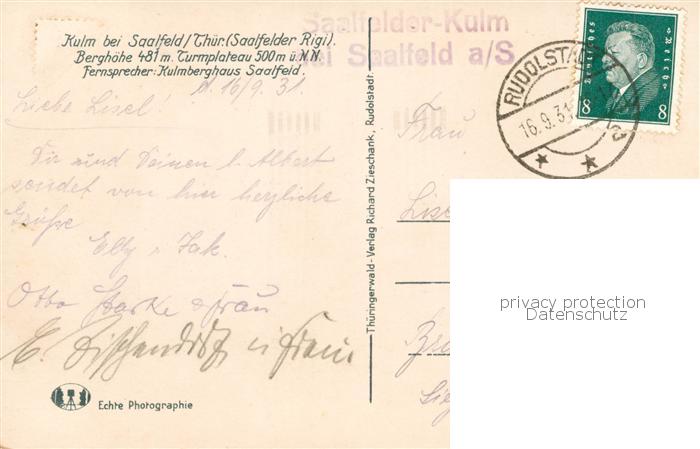 Kulm bei Saalfeld/Thür. (Saalfelder Rigi).
Berghöhe 481 m. Turmplateau 500 m ü. N.N.
Fernsprecher: Kulmberghaus Saalfeld.
Saalfelder-Kulm
bei Saalfeld a/S.
RUDOLSTADT
16.9.31
Deutsches Reich
8 8
16/9.31.
Liebe Lisel!
Dir und Deinen l. Albert
sendet von hier herzliche
Grüße
Elly
Otto Starke & Frau
E. u Frau
Frau
Thüringerwald-Verlag Richard Zieschank, Rudolstadt.
Echte Photographie
privacy protection
Datenschutz